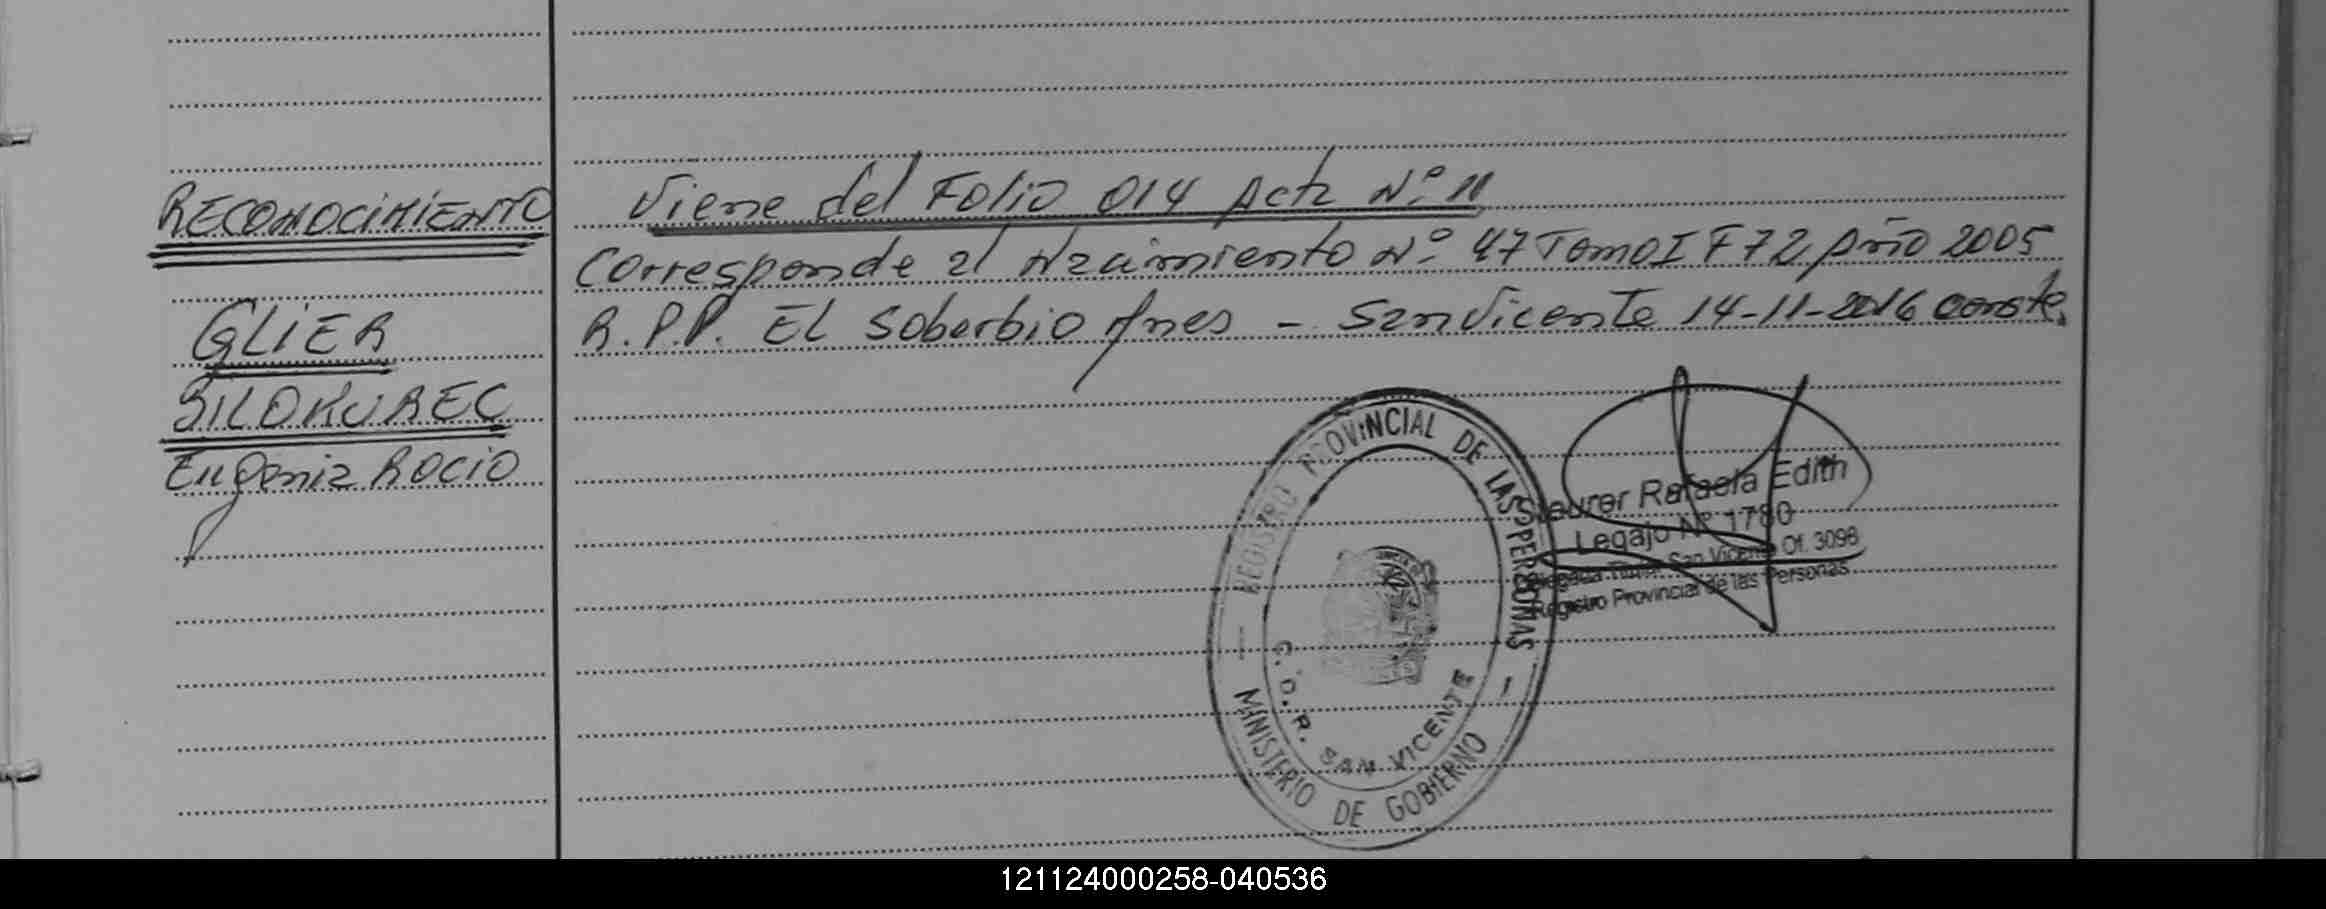 RECONOCIMIENTO
GLIER
SILOKUREC
Eugenia Rocio
Viene del Folio 014 Acta N° 11
Corresponde al Nacimiento N° 47 Tomo I F 72 Año 2005
R.P.P. El Soberbio Mnes - San Vicente 14-11-2016 conste.
REGISTRO PROVINCIAL DE LAS PERSONAS
MINISTERIO DE GOBIERNO
C.D.R. SAN VICENTE
Rafaela Edith
Legajo N° 1780
San Vicente Of. 3098
Registro Provincial de las Personas
121124000258-040536